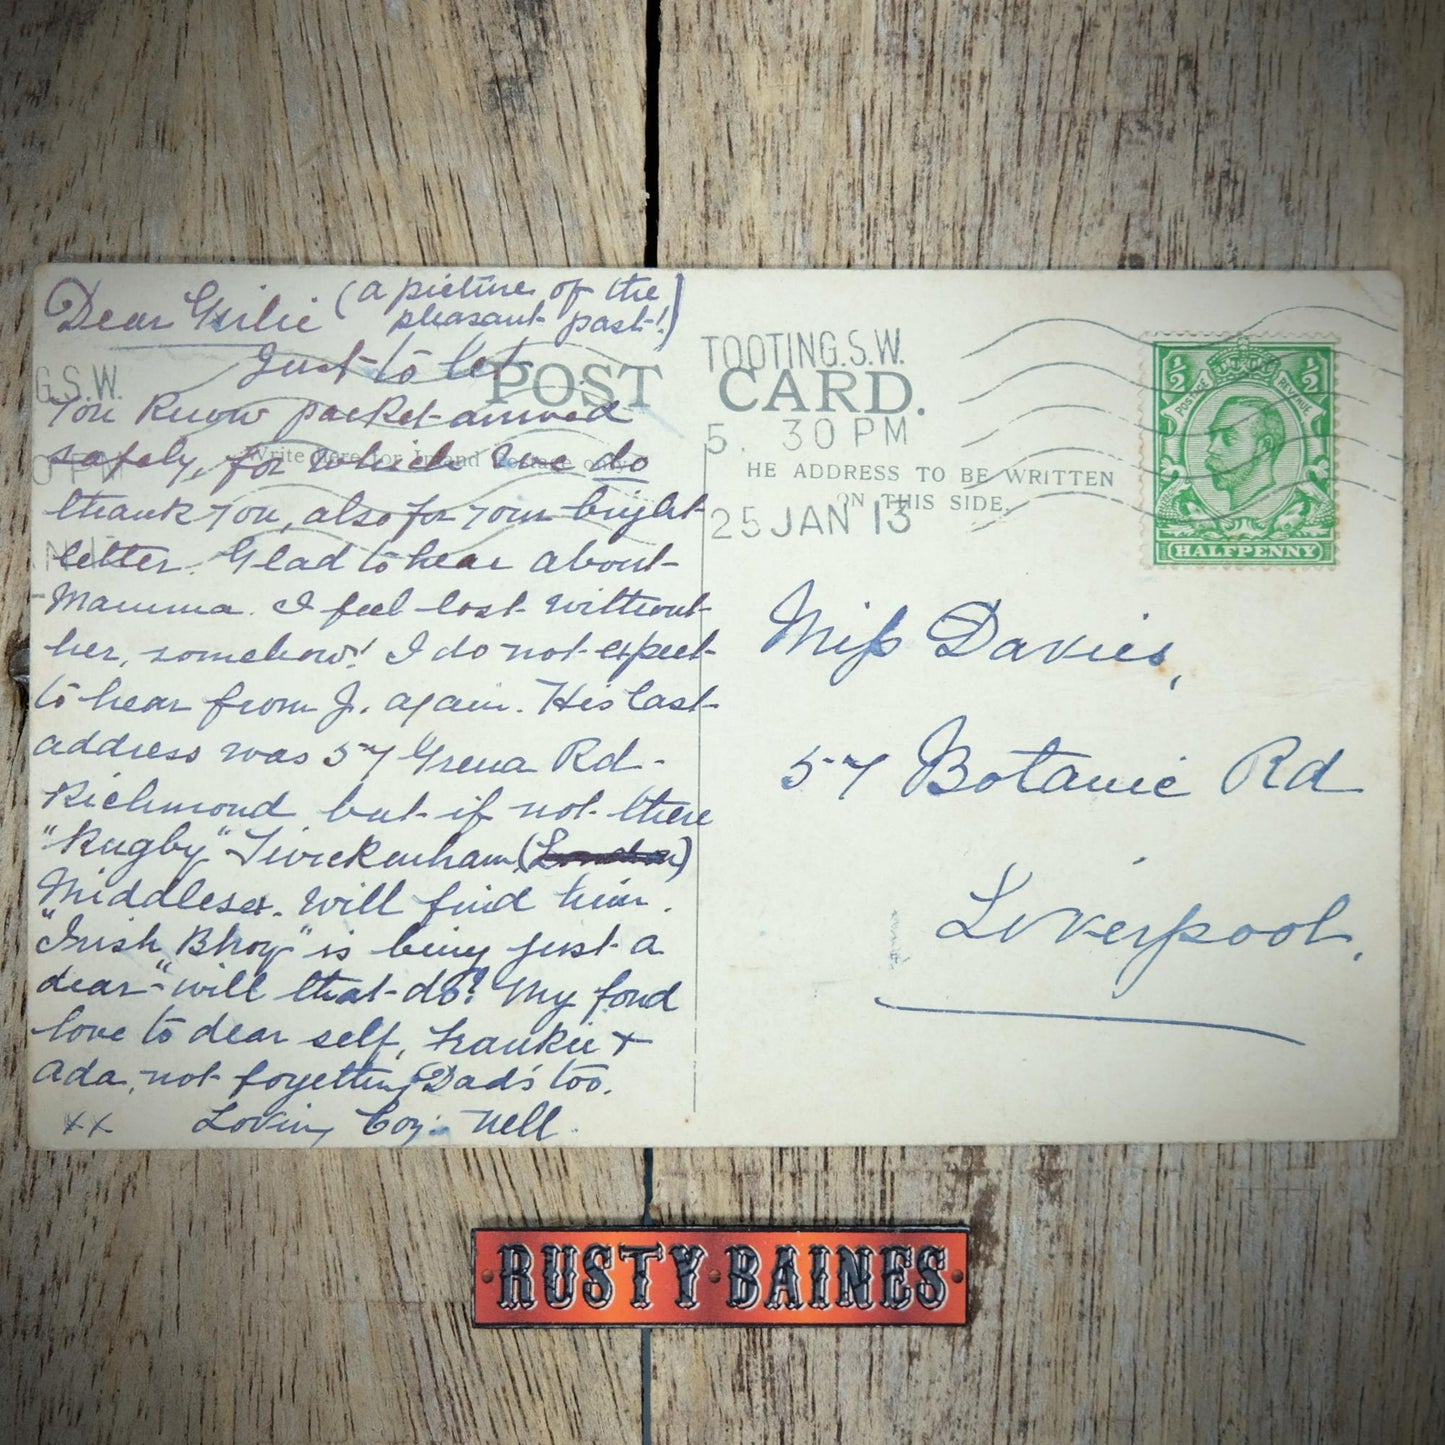 Dear Girlie (a picture of the
pleasant past!)
Just to let
you know packet arrived
safely, for which we do
thank you, also for your bright
letter. Glad to hear about
Mamma. I feel lost without
her, somehow! I do not expect
to hear from J. again. His last
address was 57 Grena Rd.
Richmond but if not there
"Rugby" Twickenham (London)
Middlesex. will find him.
"Irish Bhoy" is being just a
dear "will that do? My fond
love to dear self, Frankie +
Ada, not forgetting Dad's too.
xx Loving Coz: Nell.
POST CARD.
Write here for Inland Postage only
HE ADDRESS TO BE WRITTEN
ON THIS SIDE.
G.S.W.
TOOTING.S.W.
5. 30 PM
25 JAN 13
½ ½
POSTAGE REVENUE
HALFPENNY
Miss Davies,
57 Botanic Rd
Liverpool.
RUSTY·BAINES